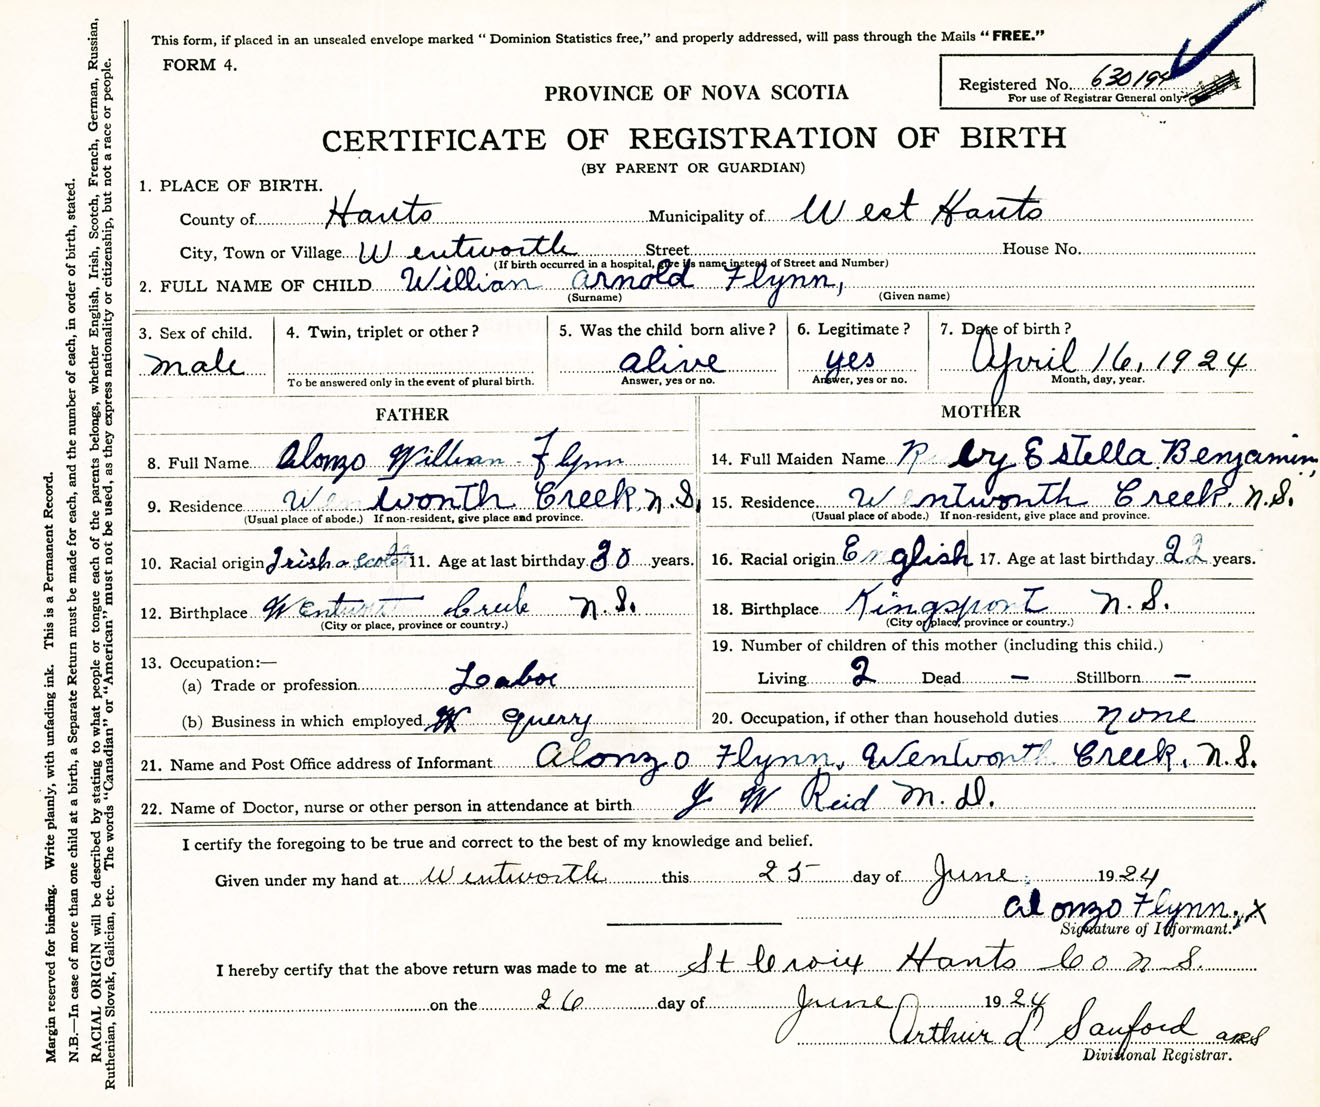 This form, if placed in an unsealed envelope marked “ Dominion Statistics free,” and properly addressed, will pass through the Mails “ FREE.”
FORM 4.
Registered No. 630194
For use of Registrar General only.
PROVINCE OF NOVA SCOTIA
CERTIFICATE OF REGISTRATION OF BIRTH
(BY PARENT OR GUARDIAN)
1. PLACE OF BIRTH.
County of Hants Municipality of West Hants
City, Town or Village Wentworth Street House No.
(If birth occurred in a hospital, give its name instead of Street and Number)
2. FULL NAME OF CHILD Willian Arnold Flynn,
(Surname) (Given name)
3. Sex of child. 4. Twin, triplet or other ? 5. Was the child born alive ? 6. Legitimate ? 7. Date of birth ?
male alive yes April 16, 1924
To be answered only in the event of plural birth. Answer, yes or no. Answer, yes or no. Month, day, year.
FATHER MOTHER
8. Full Name Alonzo Willian Flynn 14. Full Maiden Name R by Estella Benjamin,
9. Residence Wentworth Creek, N.S. 15. Residence Wentworth Creek. N.S.
(Usual place of abode.) If non-resident, give place and province. (Usual place of abode.) If non-resident, give place and province.
10. Racial origin Irish & Scotch 11. Age at last birthday 30 years. 16. Racial origin English 17. Age at last birthday 22 years.
12. Birthplace Wentworth Creek N.S. 18. Birthplace Kingsport N.S.
(City or place, province or country.) (City or place, province or country.)
13. Occupation:— 19. Number of children of this mother (including this child.)
(a) Trade or profession Labor Living 2 Dead – Stillborn –
(b) Business in which employed querry 20. Occupation, if other than household duties none
21. Name and Post Office address of Informant Alonzo Flynn, Wentworth Creek, N.S.
22. Name of Doctor, nurse or other person in attendance at birth J W Reid M.D.
I certify the foregoing to be true and correct to the best of my knowledge and belief.
Given under my hand at Wentworth this 25 day of June 1924
Alonzo Flynn, X
Signature of Informant.
I hereby certify that the above return was made to me at St Croix Hants Co N S.
on the 26 day of June 1924
Arthur L Sanford
Divisional Registrar.
Margin reserved for binding. Write plainly, with unfading ink. This is a Permanent Record.
N.B.—In case of more than one child at a birth, a Separate Return must be made for each, and the number of each, in order of birth, stated.
RACIAL ORIGIN will be described by stating to what people or tongue each of the parents belongs, whether English, Irish, Scotch, French, German, Russian,
Ruthenian, Slovak, Galician, etc. The words “Canadian” or “American” must not be used, as they express nationality or citizenship, but not a race or people.